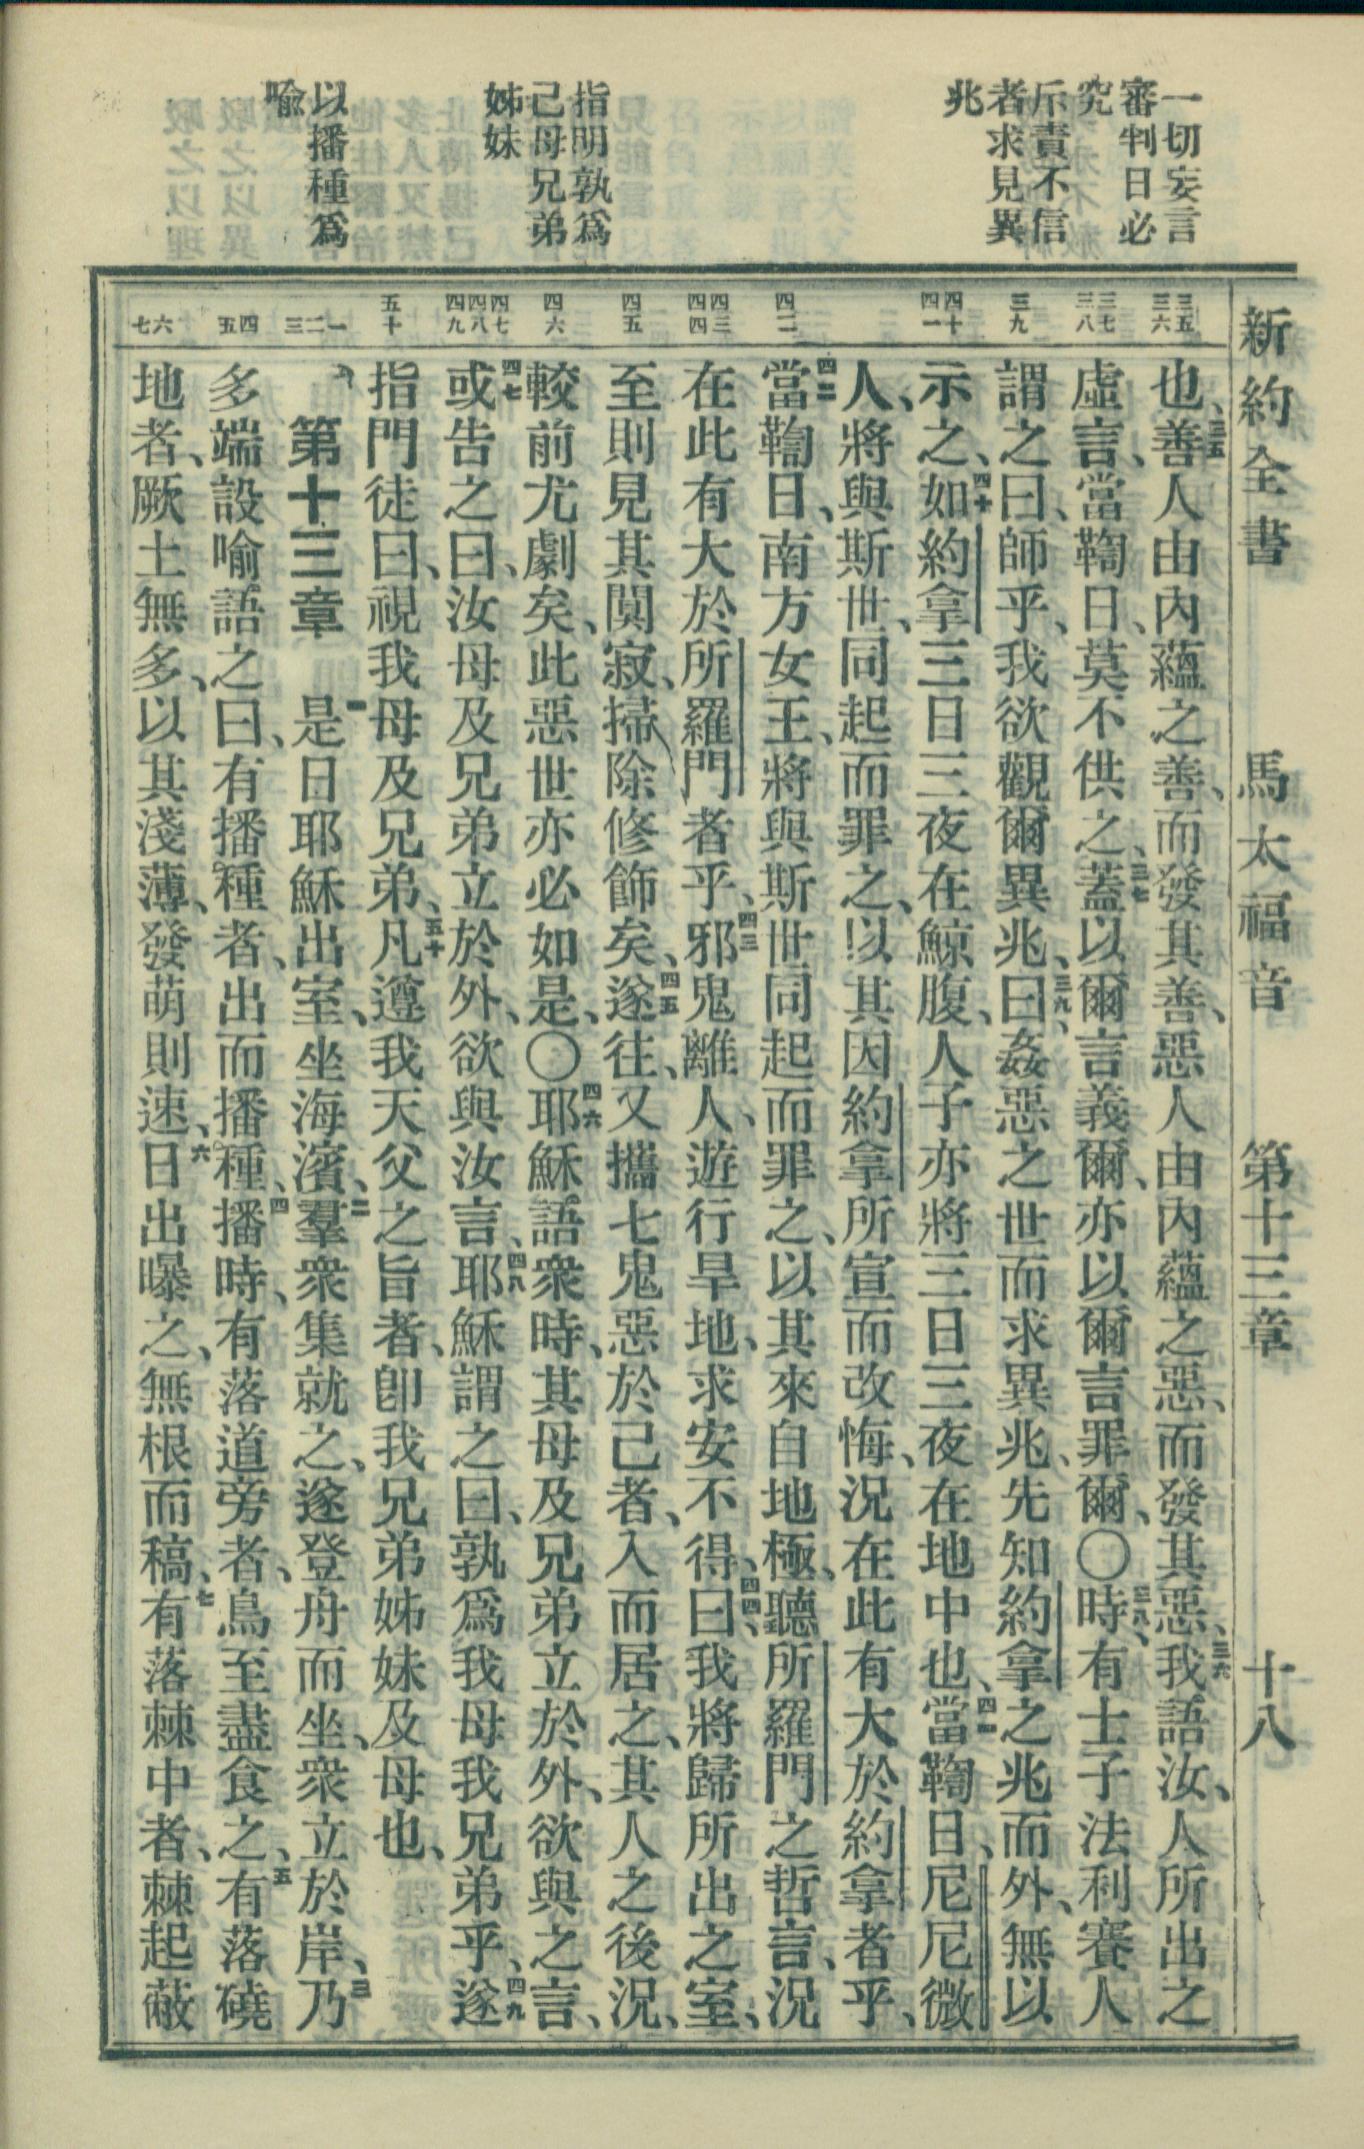 新約全書　馬太福音　第十三章　十八
一切妄言
審判日必
究
斥責不信
者求見異
兆
指明孰爲
己母兄弟
姊妹
以播種爲
喻
三五 三六
三七 三八
三九
四十 四一
四二
四三 四四
四五
四六
四七 四八 四九
五十
一 二 三
四 五
六 七
也、三五善人由內蘊之善、而發其善、惡人由內蘊之惡、而發其惡、三六我語汝、人所出之
虛言、當鞫日、莫不供之、三七蓋以爾言義爾、亦以爾言罪爾、〇三八時有士子法利賽人
謂之曰、師乎、我欲觀爾異兆、三九曰、姦惡之世而求異兆、先知約拿之兆而外、無以
示之、四十如約拿三日三夜在鯨腹、人子亦將三日三夜在地中也、四一當鞫日、尼尼微
人、將與斯世、同起而罪之、以其因約拿所宣而改悔、況在此有大於約拿者乎、
四二當鞫日、南方女王、將與斯世同起而罪之、以其來自地極、聽所羅門之哲言、況
在此有大於所羅門者乎、四三邪鬼離人、遊行旱地、求安不得、四四曰、我將歸所出之室、
至則見其闃寂、掃除修飾矣、四五遂往、又攜七鬼惡於己者、入而居之、其人之後況、
較前尤劇矣、此惡世亦必如是、〇四六耶穌語衆時、其母及兄弟立於外、欲與之言、
四七或告之曰、汝母及兄弟立於外、欲與汝言、四八耶穌謂之曰、孰爲我母我兄弟乎、四九遂
指門徒曰、視我母及兄弟、五十凡遵我天父之旨者、卽我兄弟姊妹及母也、
第十三章　一是日耶穌出室、坐海濱、二羣衆集就之、遂登舟而坐、衆立於岸、三乃
多端設喻語之曰、有播種者、出而播種、四播時、有落道旁者、鳥至盡食之、五有落磽
地者、厥土無多、以其淺薄、發萌則速、六日出曝之、無根而稿、七有落棘中者、棘起蔽